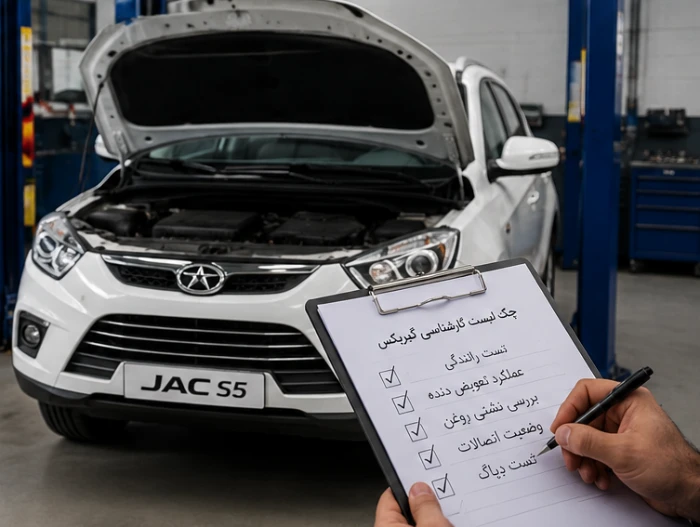 JAC S5
چک لیست کارشناسی گیربکس
تست رانندگی
عملکرد تعویض دنده
بررسی نشتی روغن
وضعیت اتصالات
تست دیاگ